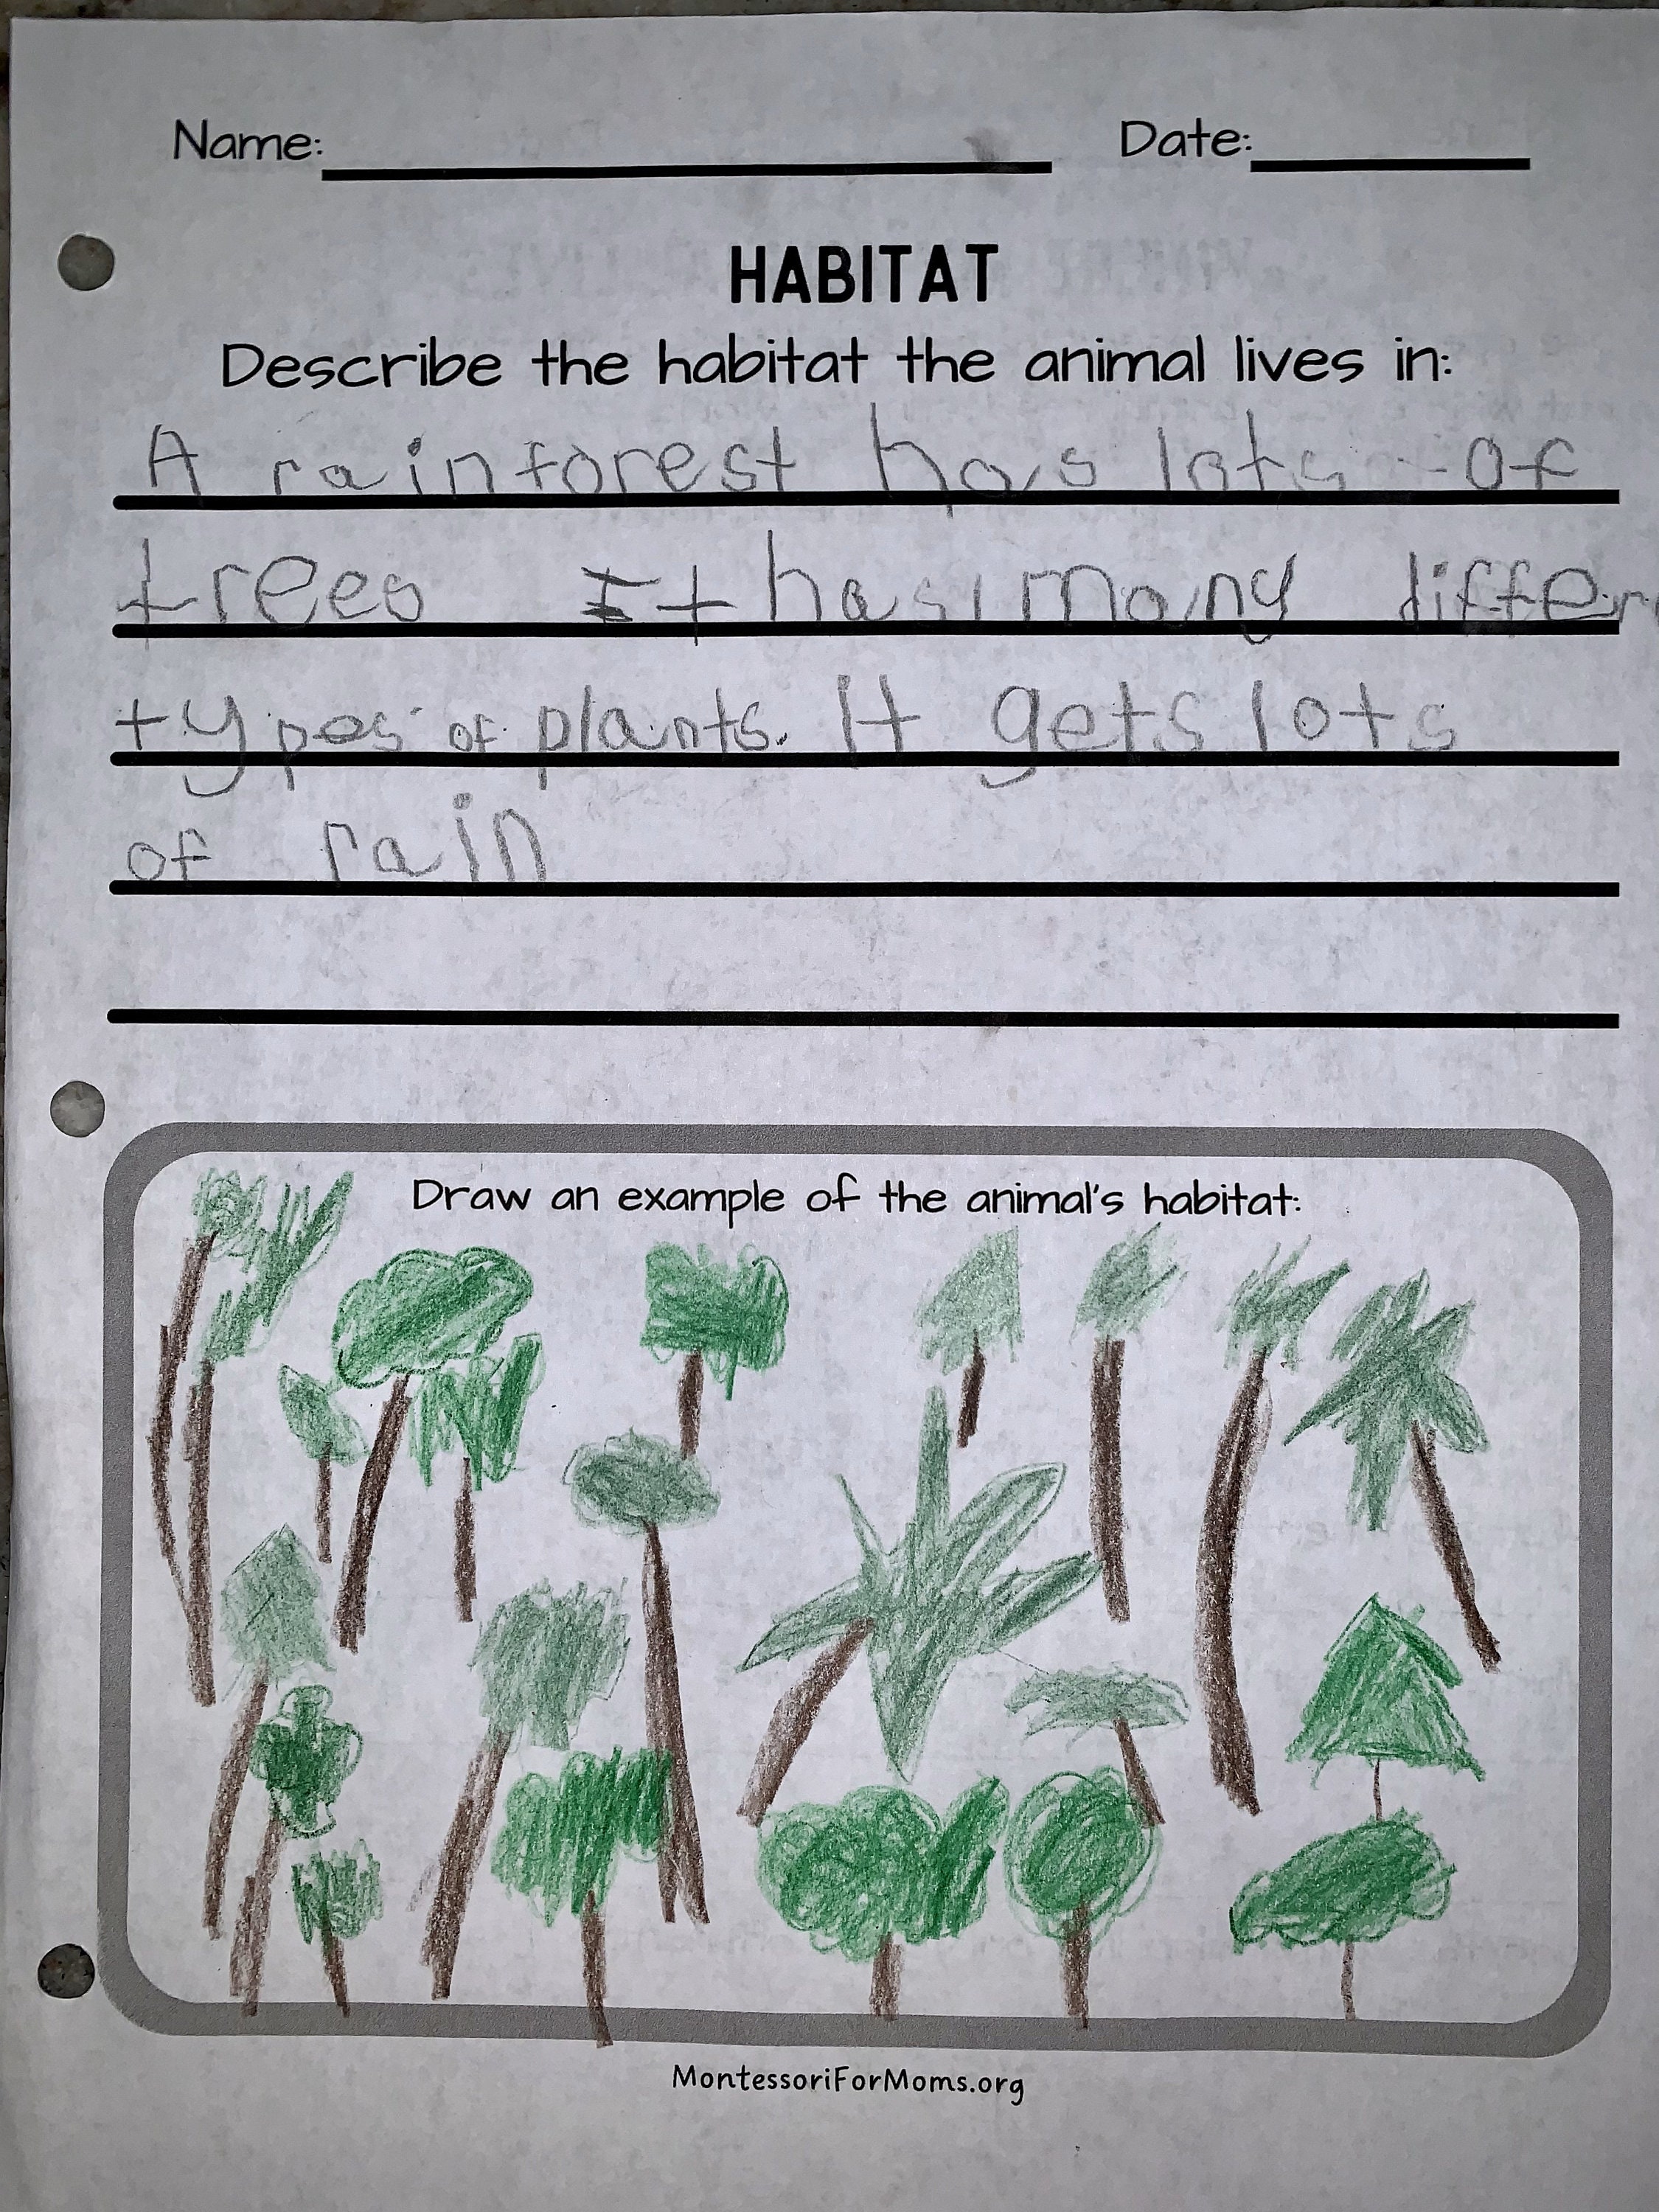 Name: Date:
HABITAT
Describe the habitat the animal lives in:
A rainforest has lots of
trees It has many differ
types of plants. It gets lots
of rain
Draw an example of the animal's habitat:
MontessoriForMoms.org